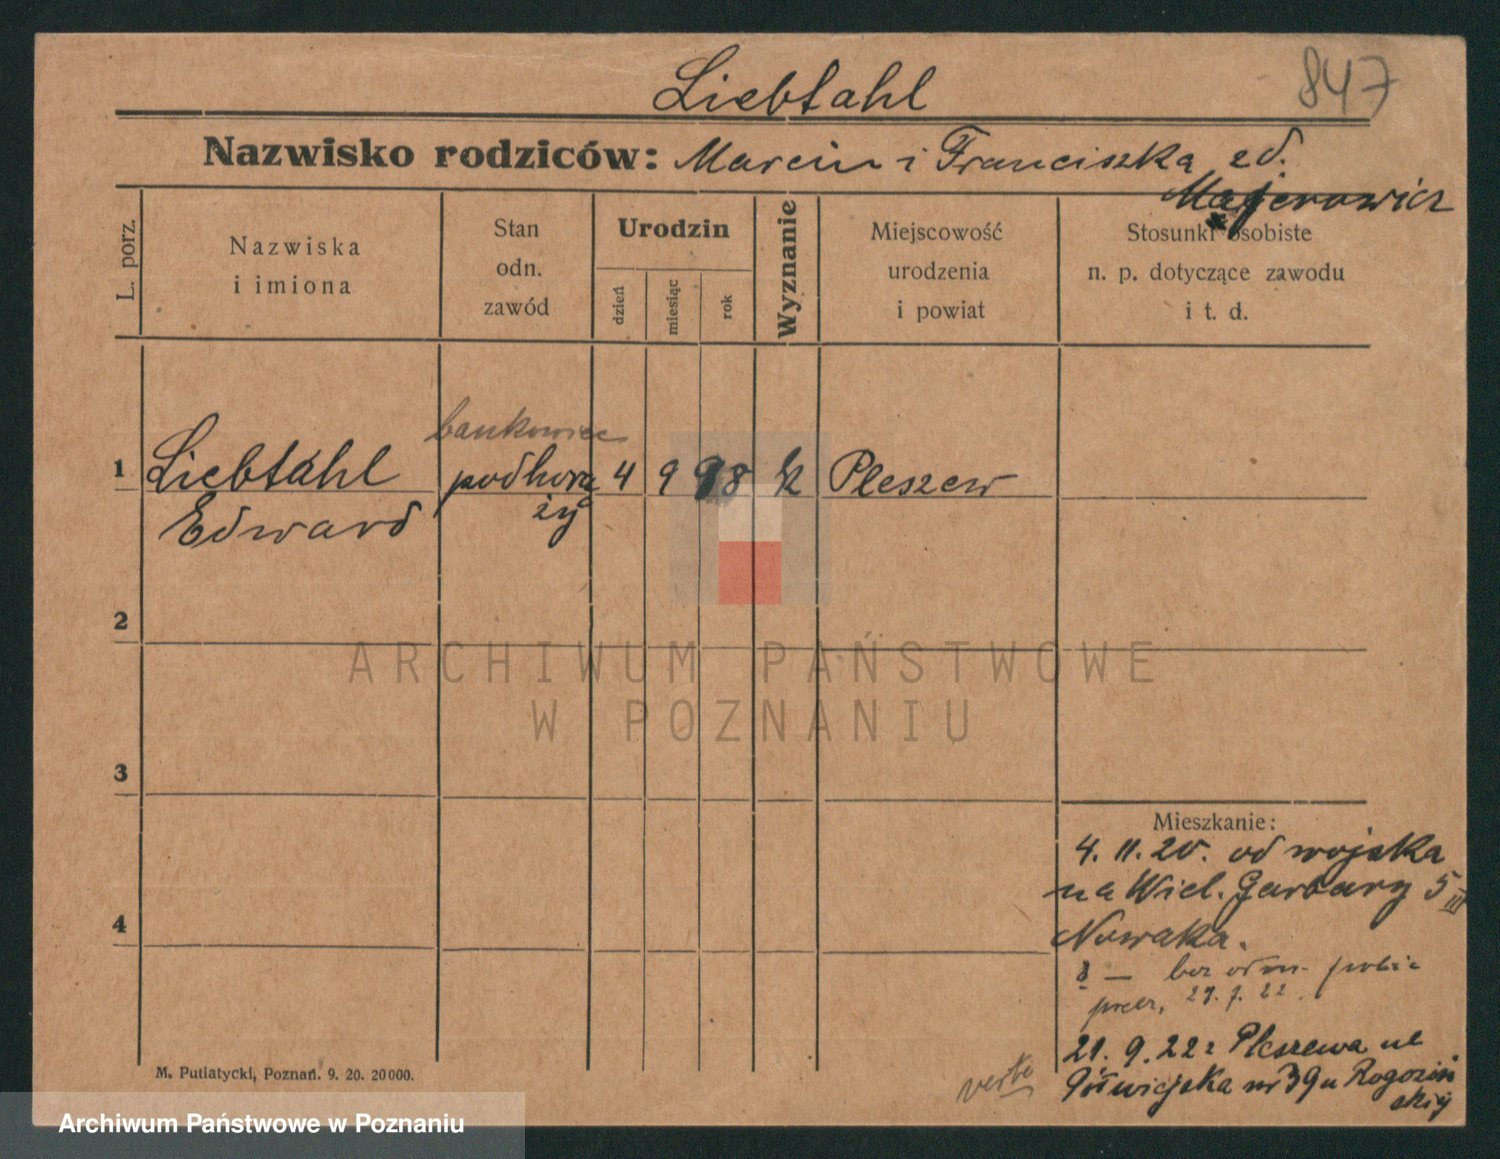 Liebtahl
847
Nazwisko rodziców: Marcin i Franciszka zd.
Majerowicz
L. porz.
Nazwiska
i imiona
Stan
odn.
zawód
Urodzin
dzień
miesiąc
rok
Wyznanie
Miejscowość
urodzenia
i powiat
Stosunki osobiste
n. p. dotyczące zawodu
i t. d.
bankowiec
1 Liebtahl podhorą 4 9 98 k Pleszew
Edward ży
2
3
4
Mieszkanie:
4. 11. 20. od wojska
na Wiel. Garbary 5 III
Nowaka.
bez
29. 7. 22.
21. 9. 22 z Pleszewa ul
Półwiejska nr 39 u Rogoziń
skiej
verte
M. Putiatycki, Poznań. 9. 20. 20000.
ARCHIWUM PAŃSTWOWE
W POZNANIU
Archiwum Państwowe w Poznaniu